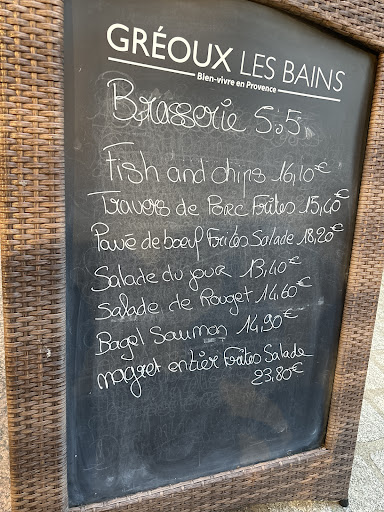 GRÉOUX LES BAINS
Bien-vivre en Provence
Brasserie 5.5
Fish and chips 16,10€
Travers de Porc Frites 15,40€
Pavé de boeuf Frites Salade 18,20€
Salade du jour 13,40€
Salade de Rouget 14,60€
Bagel Saumon 14,90€
magret entier Frites Salade
23,80€